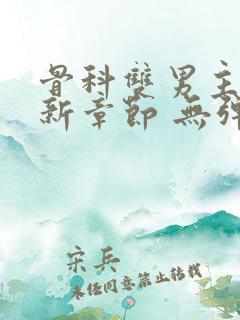 骨科雙男主
新章節 無彈
宋兵
未经同意禁止转载